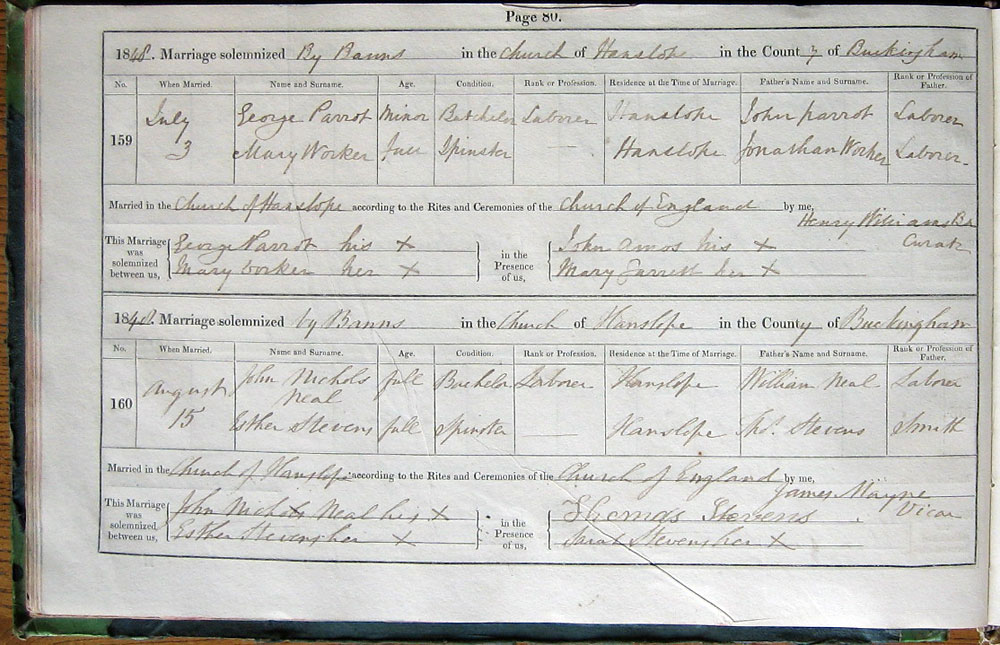 Page 80.
1848. Marriage solemnized By Banns in the Church of Hanslope in the County of Buckingham
No. When Married. Name and Surname. Age. Condition. Rank or Profession. Residence at the Time of Marriage. Father's Name and Surname. Rank or Profession of Father.
159 July 3 George Parrot Minor Batchelor Laborer Hanslope John Parrot Laborer
Mary Worker Full Spinster — Hanslope Jonathan Worker Laborer
Married in the Church of Hanslope according to the Rites and Ceremonies of the Church of England by me,
Henry Williams
Curate
This Marriage was solemnized between us, George Parrot his X in the Presence of us, John Amos his X
Mary Worker her X Mary Garrett her X
1848. Marriage solemnized by Banns in the Church of Hanslope in the County of Buckingham
No. When Married. Name and Surname. Age. Condition. Rank or Profession. Residence at the Time of Marriage. Father's Name and Surname. Rank or Profession of Father.
160 August 15 John Nichols Neal full Bachelor Laborer Hanslope William Neal Laborer
Esther Stevens full Spinster — Hanslope Thos. Stevens Smith
Married in the Church of Hanslope according to the Rites and Ceremonies of the Church of England by me,
James Mayne
Vicar
This Marriage was solemnized between us, John Nichols Neal his X in the Presence of us, Thomas Stevens
Esther Stevens her X Sarah Stevens her X